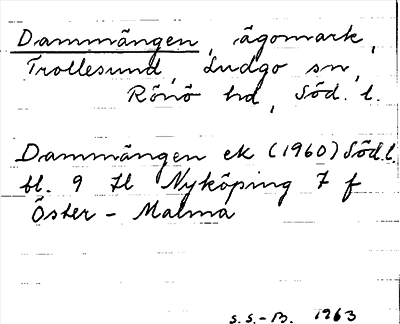 Dammängen, ägomark,
Trollesund, Ludgo sn,
Rönö hd, Söd. l.
Dammängen ek (1960) Söd.l.
bl. 9 Il Nyköping 7 f
Öster - Malma
S.S.-B. 1963